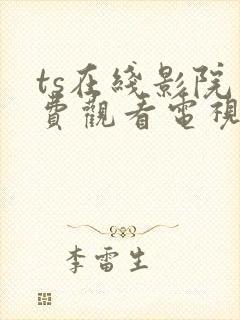 ts在綫影院
費觀看電視
李雷生